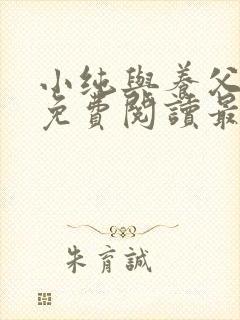 小纯與養父
免費閱讀最
朱育誠